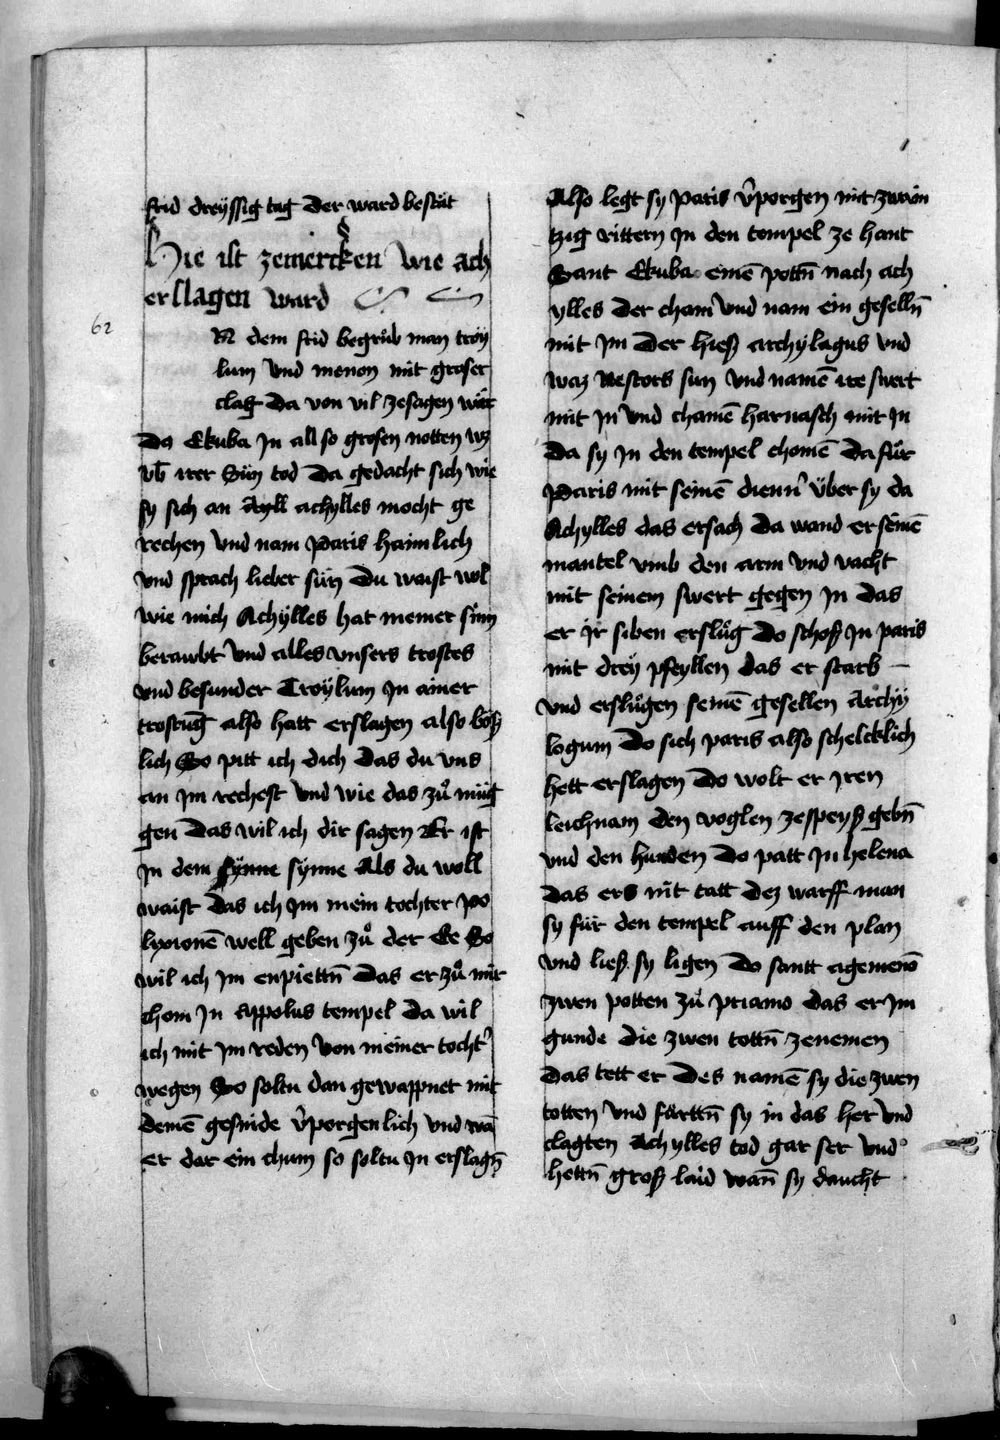 frid dreyssig tag der ward bestät
Hie ist zemercken wie ach
erslagen ward
62
N dem frid begrůb man troy
lum vnd menon mit groser
clag da von vil zesagen wär
Do Ekuba in all so grosen notten wz
vb irer Sün tod Da gedacht sich wie
sy sich an achylles mocht ge
rechen vnd nam Paris haimlich
vnd sprach lieber sün Du waist wol
wie mich Achylles hat meiner sünn
beraubt vnd alles vnsers trostes
vnd besunder Troylum In ainer
trostuḡ also hatt erslagen also bös
lich So pitt ich dich das du vns
an Im rechest vnd wie das zů müg
gen Das wil ich dir sagen Er ist
In dem synne Als du woll
waist das ich Im mein tochter po
lixionē well geben zů der Ee So
wil ich Im enpiettn̄ Das er zů mir
chom In Appolus tempel da wil
ich mit Im reden von meiner tocht'
wegen So soltu dan gewappnet mit
deinē gesinde v'porgenlich vnd wā
er dar ein chum so soltu In erslagn̄
Also legt sy Paris v'porgen mit zwain
tzig rittern In den tempel ze hant
Sant Ekuba einē pottn̄ nach ach
ylles der cham vnd nam ein geselln̄
mit Im Der hieß archylagus vnd
waz Nestors sun vnd namē ire swert
mit In vnd chamē harnasch mit In
Da sy In den tempel chomē Da für
Paris mit seinē dienn' über sy da
Achylles das ersach Da wand er seinē
mantel vmb den arm vnd vacht
mit seinem swert gegen In das
er Ir siben erslůg Do schoß In paris
mit drey pfeyllen das er starb —
vnd erslůgen seinē gesellen Archy
logum Do sich paris also schelcklich
hett erslagen Do wolt er Iren
leichnam den voglen zespeyß gebn̄
vnd den hunden Do patt In helena
das ers nit tatt dez warff man
sy für den tempel auff den plan
vnd ließ sy ligen Do santt agemenō
zwen potten zů priamo das er Im
gunde die zwen tottn̄ zenemen
Das tett er Des namē sy die zwen
totten vnd fürttn̄ sy in das her vnd
clagten Achylles tod gar ser vnd
hettn̄ groß laid wan̄ sy daucht